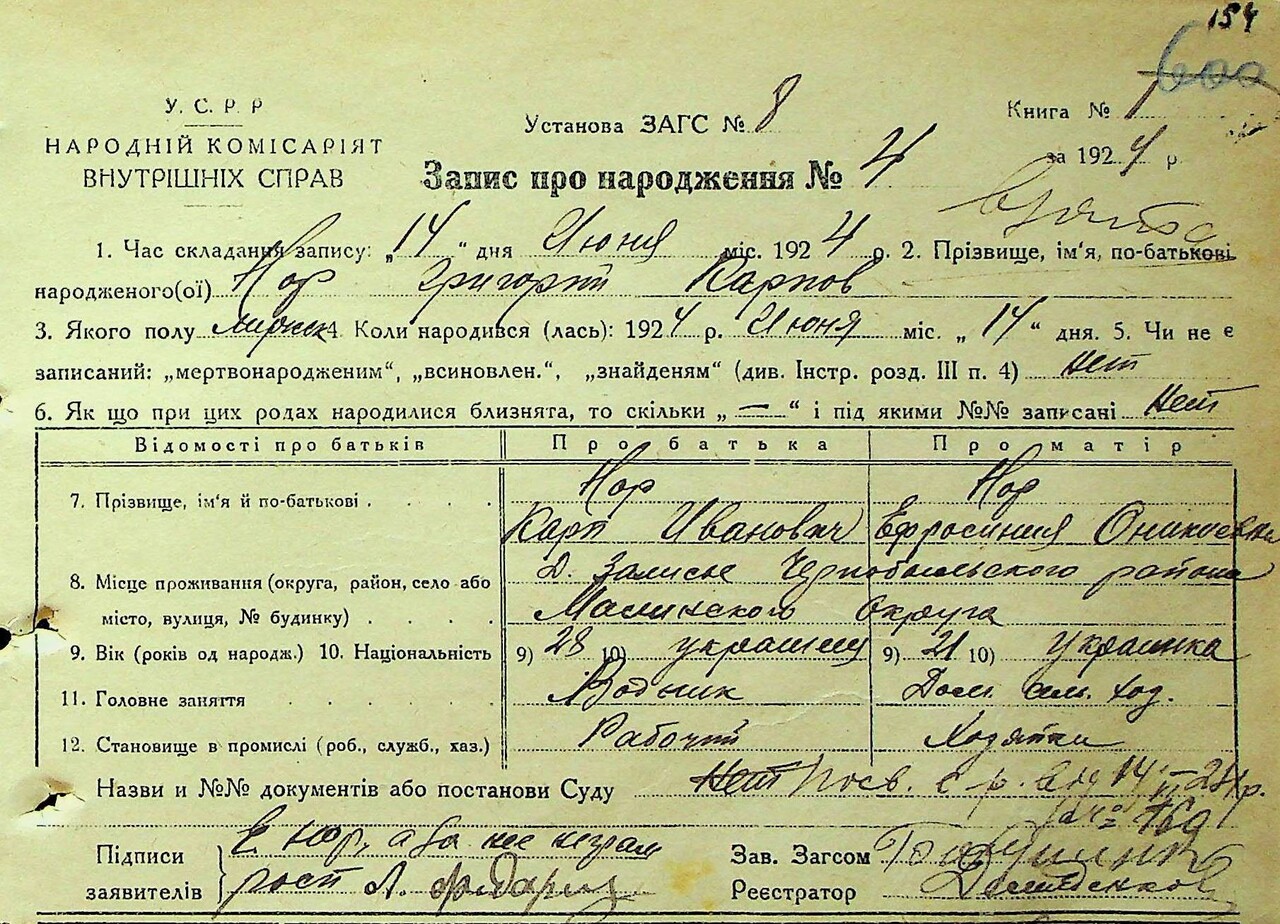 154
600
У. С. Р. Р
НАРОДНІЙ КОМІСАРІЯТ
ВНУТРІШНІХ СПРАВ
Установа ЗАГС № 8
Книга № 1
за 1924 р
Запис про народження № 4
взято
1. Час складання запису: „14“ дня Июня міс. 1924 р. 2. Прізвище, ім'я, по-батькові
народженого(ої) Нор Григорий Карпов
3. Якого полу мужск 4. Коли народився (лась): 1924 р. Июня міс. „14“ дня. 5. Чи не є
записаний: „мертвонародженим“, „всиновлен.“, „знайденям“ (див. Інстр. розд. III п. 4) Нет
6. Як що при цих родах народилися близнята, то скільки „—“ і під якими №№ записані Нет
Відомості про батьків Про батька Про матір
7. Прізвище, ім'я й по-батькові Нор Нор
Карп Иванович Ефросиния Оникиевна
8. Місце проживання (округа, район, село або Д. Залисье Чернобыльского района
місто, вулиця, № будинку) Малинского Округа
9. Вік (років од народж.) 10. Національність 9) 28 10) украинец 9) 21 10) Украинка
11. Головне заняття Водник Дом. сель. хоз.
12. Становище в промислі (роб., служб., хаз.) Рабочий Хозяйка
Назви и №№ документів або постанови Суду Нет Посв. с р. 14 24 р.
№ 769
Підписи Е Нор, а за нее
заявителів рост Л.
Зав. Загсом
Реєстратор